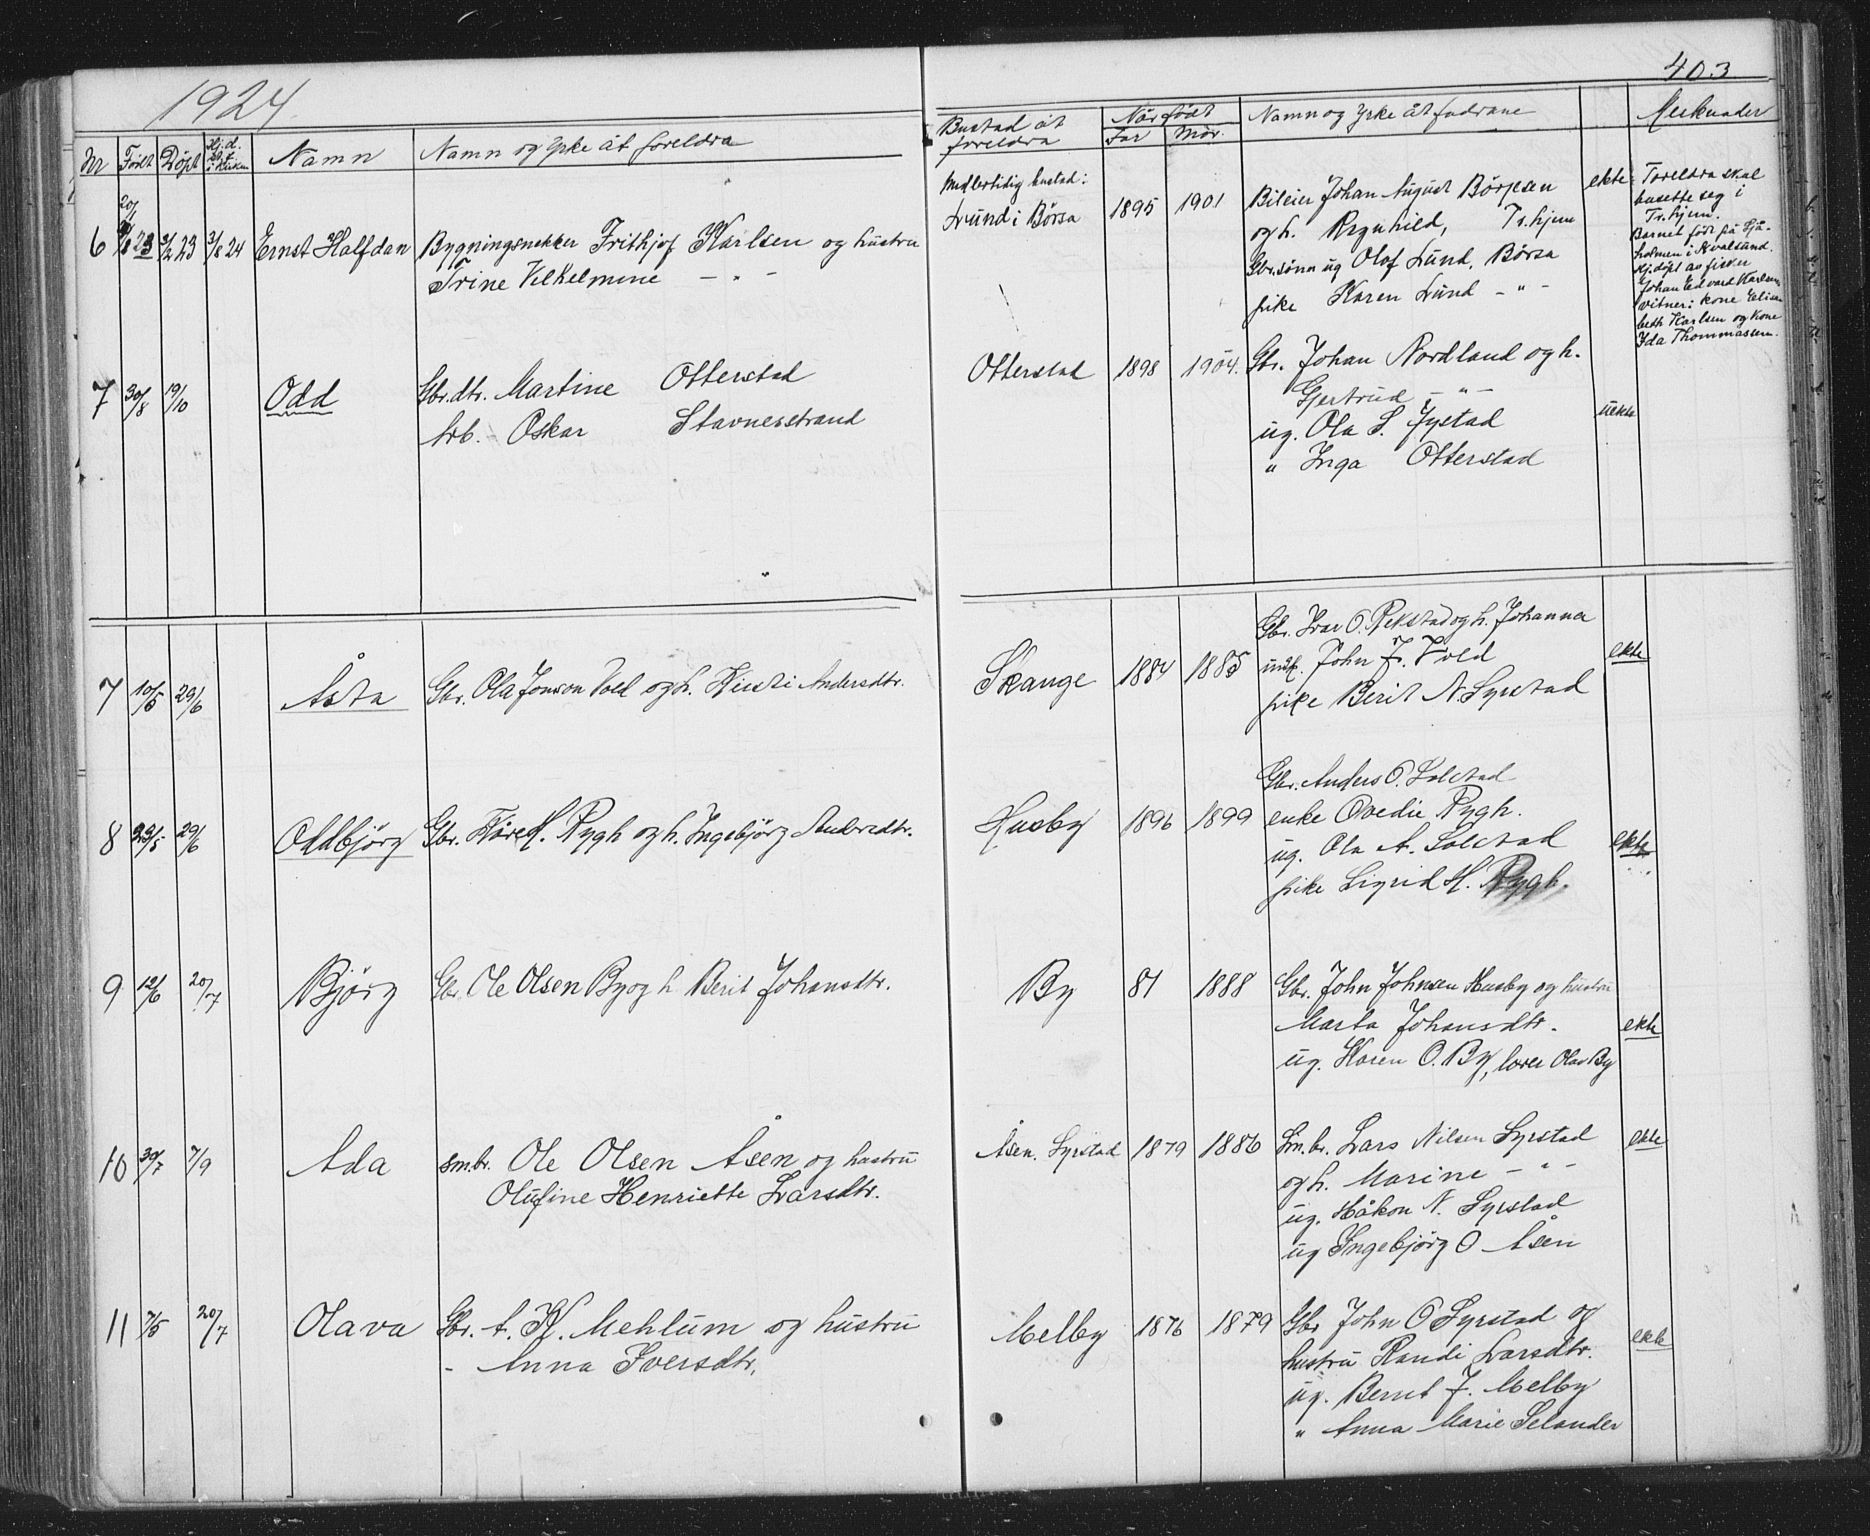 1924.
403
Nr Født Døpt Hj.d. Namn Namn og Yrke åt foreldra
Bustad åt foreldra Når født Far Mor. Namn og Yrke åt fadrane Merknader
6 20/1 23 3/2 23 3/8 24 Ernst Halfdan Bygningsnekker Frithjof Karlsen og hustru
Trine Vilhelmine — " —
Midlertidig bustad:
Lund i Børsa 1895 1901
Bileier Johan August Børjesen
og h. Ragnhild, Tr.hjem
Gbr.sønn ug Olaf Lund, Børsa
pike Karen Lund — " —
ekte
Foreldra skal
busette seg i
Tr.hjem.
Barnet født på Sjå-
holmen i Kvalsund.
Hj.døpt av fisker
Johan Edvard Karlsen,
vitner: kone Elisa-
beth Karlsen og kone
Ida Thommassen.
7 30/8 19/10 Odd Gbr.dtr. Martine Otterstad
Arb. Oskar Stavnesstrand
Otterstad 1898 1904.
Gbr. Johan Nordland og h.
Gjertrud — " —
ug. Ola S. Fystad
" Inga Otterstad
uekte
7 10/5 29/6 Åsta Gbr. Ola Jonson Vold og h. Kirsti Andersdtr.
Skange 1884 1885
Gbr. Ivar O. Rekstad og h. Johanna
ungk. John J. Vold
pike Berit N. Syrstad
ekte
8 29/5 29/6 Oddbjørg Gbr. Kåre H. Rygh og h. Ingebjørg Andersdtr.
Husby 1896 1899
Gbr. Anders O. Solstad
enke Ovedie Rygh.
ug. Ola A. Solstad
pike Sigrid H. Rygh.
ekte
9 12/6 20/7 Bjørg Gbr. Ole Olsen By og h Berit Johansdtr.
By 81 1888
Gbr. John Johnsen Husby og hustru
Marta Johansdtr.
ug. Karen O. By, lærer Olav By
ekte
10 30/7 7/9 Ada sm.br. Ole Olsen Åsen og hustru
Olufine Henriette Larsdtr.
Åsen, Syrstad 1879 1886
Sm.br. Lars Nilsen Syrstad
og h. Marine — " —
ug. Håkon N. Syrstad
ug Ingebjørg O Åsen
ekte
11 7/5 20/7 Olava Gbr. A. K. Mehlum og hustru
- Anna Iversdtr.
Melby 1876 1879
Gbr John O Syrstad og
hustru Randi Larsdtr.
ug. Bernt J. Melby
" Anna Marie Selander
ekte